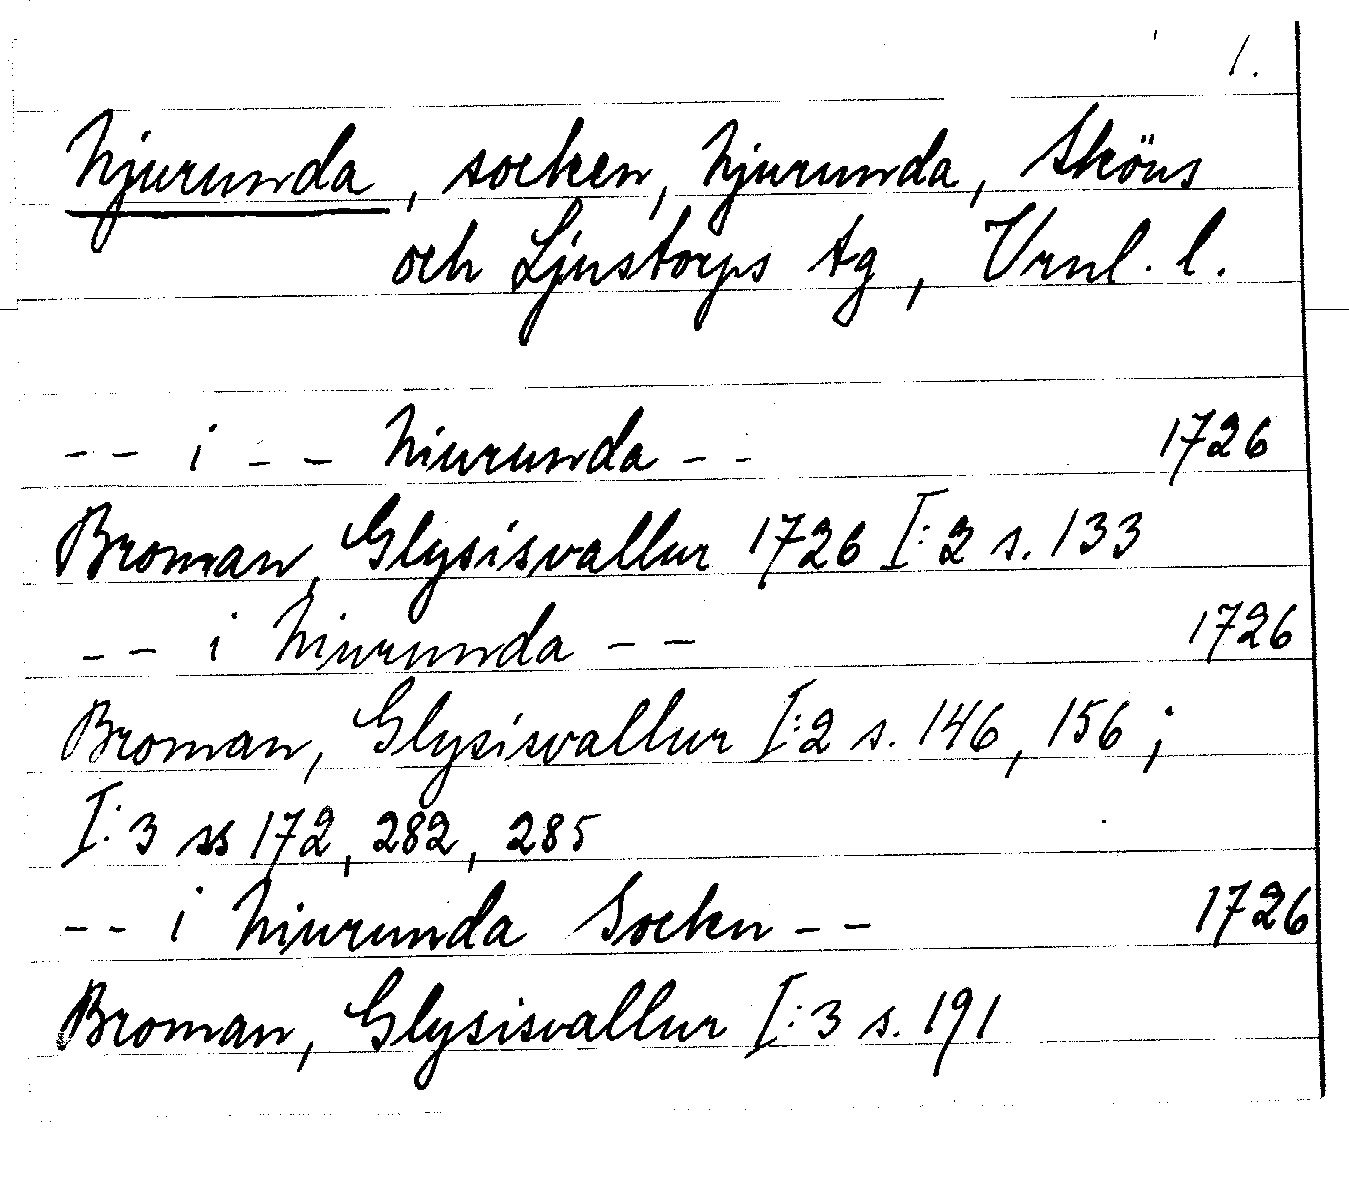 1.
Njurunda, socken, Njurunda, Sköns
och Ljustorps tg, Vrnl. l.
-- i -- Niurunda -- 1726
Broman, Glysisvallur 1726 I:2 s. 133
-- i Niurunda -- 1726
Broman, Glysisvallur I:2 s. 146, 156;
I:3 ss 172, 282, 285
-- i Niurunda Sockn -- 1726
Broman, Glysisvallur I:3 s. 191